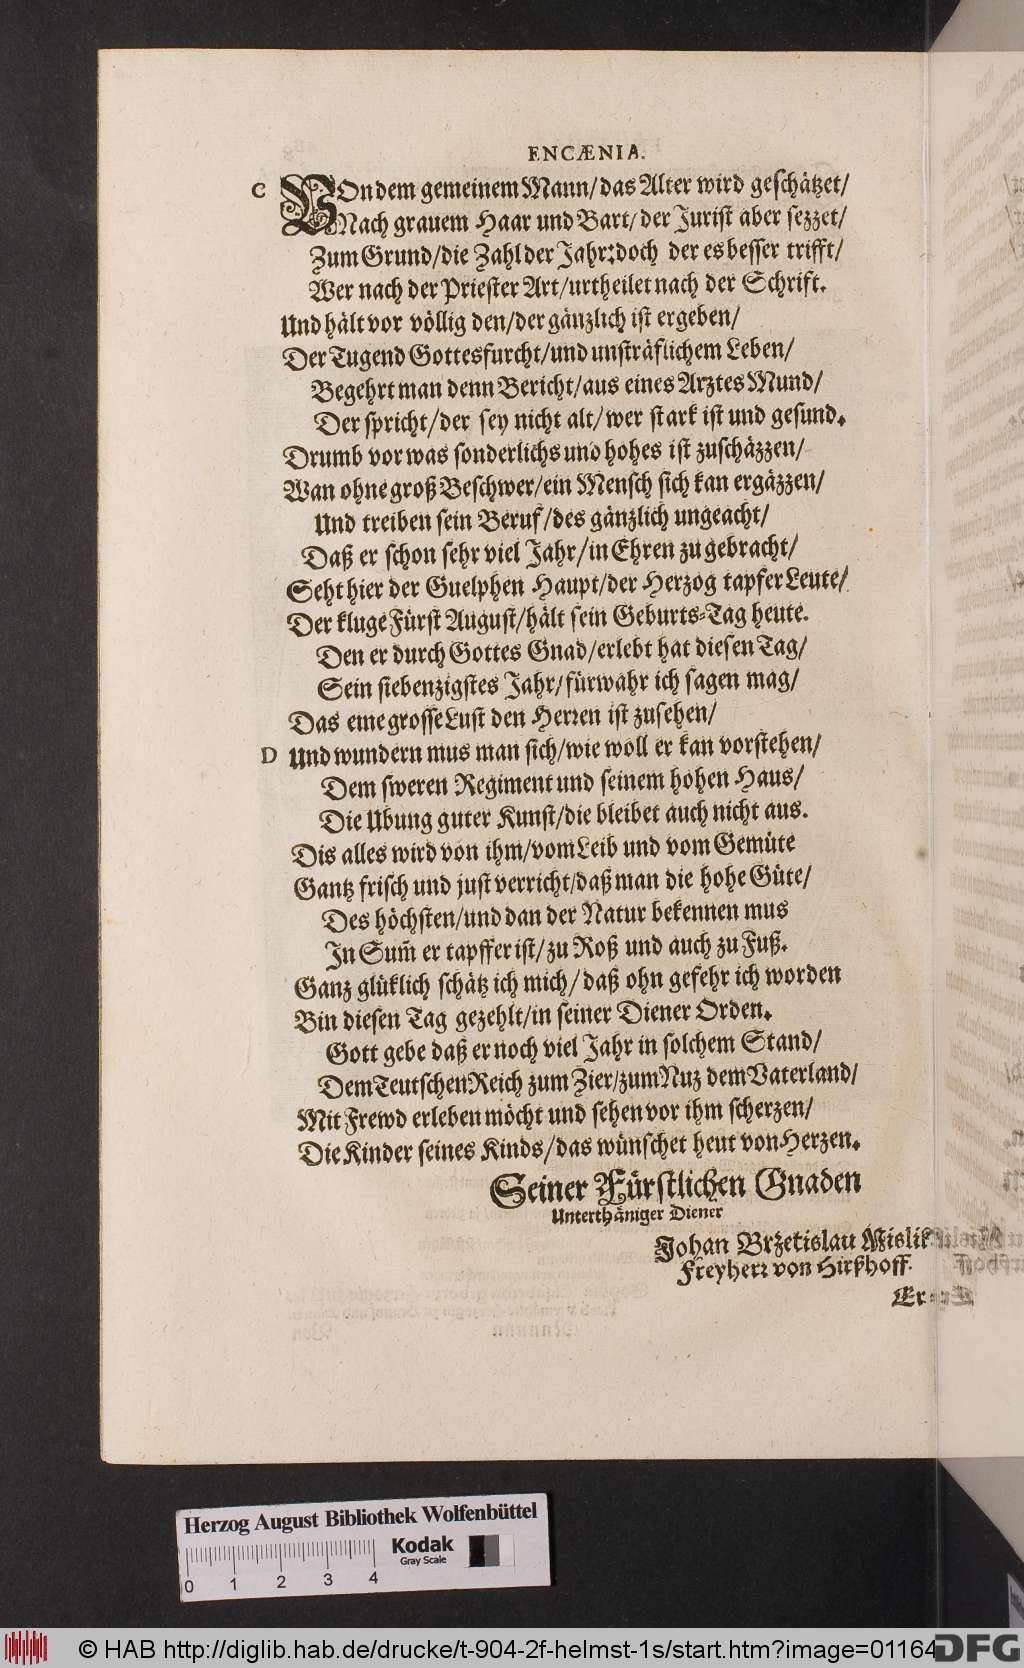 ENCÆNIA.
C VOn dem gemeinem Mann/das Alter wird geschätzet/
Nach grauem Haar und Bart/der Jurist aber sezzet/
Zum Grund/die Zahl der Jahr: doch der es besser trifft/
Wer nach der Priester Art/urtheilet nach der Schrift.
Und hält vor völlig den/der gänzlich ist ergeben/
Der Tugend Gottesfurcht/und unsträflichem Leben/
Begehrt man denn Bericht/aus eines Arztes Mund/
Der spricht/der sey nicht alt/wer stark ist und gesund.
Drumb vor was sonderlichs und hohes ist zuschäzzen/
Wan ohne groß Beschwer/ein Mensch sich kan ergäzzen/
Und treiben sein Beruf/des gänzlich ungeacht/
Daß er schon sehr viel Jahr/in Ehren zu gebracht/
Seht hier der Guelphen Haupt/der Herzog tapfer Leute/
Der kluge Fürst August/hält sein Geburts-Tag heute.
Den er durch Gottes Gnad/erlebt hat diesen Tag/
Sein siebenzigstes Jahr/fürwahr ich sagen mag/
Das eine grosse Lust den Herren ist zusehen/
D Und wundern mus man sich/wie woll er kan vorstehen/
Dem sweren Regiment und seinem hohen Haus/
Die Ubung guter Kunst/die bleibet auch nicht aus.
Dis alles wird von ihm/vom Leib und vom Gemüte
Gantz frisch und just verricht/daß man die hohe Güte/
Des höchsten/und dan der Natur bekennen mus
In Sum̃ er tapffer ist/zu Roß und auch zu Fuß.
Ganz glüklich schätz ich mich/daß ohn gefehr ich worden
Bin diesen Tag gezehlt/in seiner Diener Orden.
Gott gebe daß er noch viel Jahr in solchem Stand/
Dem Teutschen Reich zum Zier/zum Nuz dem Vaterland/
Mit Frewd erleben möcht und sehen vor ihm scherzen/
Die Kinder seines Kinds/das wünschet heut von Herzen.
Seiner Fürstlichen Gnaden
Unterthäniger Diener
Johan Bržetislau Mislik
Freyherr von Hirßhoff.
Er-
Herzog August Bibliothek Wolfenbüttel
Kodak
Gray Scale
0 1 2 3 4
© HAB http://diglib.hab.de/drucke/t-904-2f-helmst-1s/start.htm?image=01164
DFG